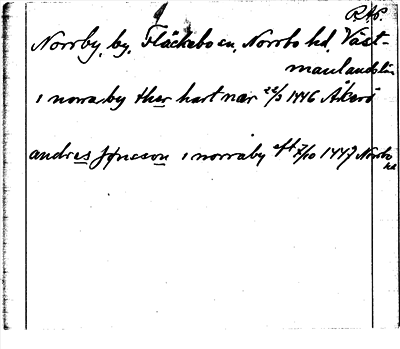 RAp.
Norrby, by, Fläckebo sn, Norrbo hd, Väst-
manlandslän
i norra by ther hart nær 22/2 1446 Åkerö
andres jønsson i norraby eft 7/10 1447 Norrbo
hd